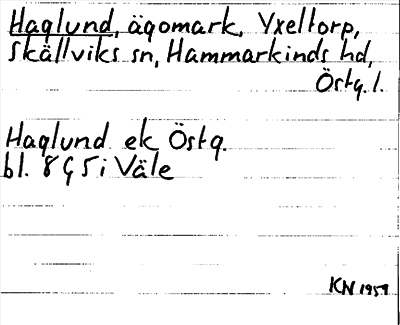 Haglund, ägomark, Yxeltorp,
Skällviks sn, Hammarkinds hd,
Östg. l.
Haglund ek Östg.
bl. 8 G 5 i Väle
KN 1959